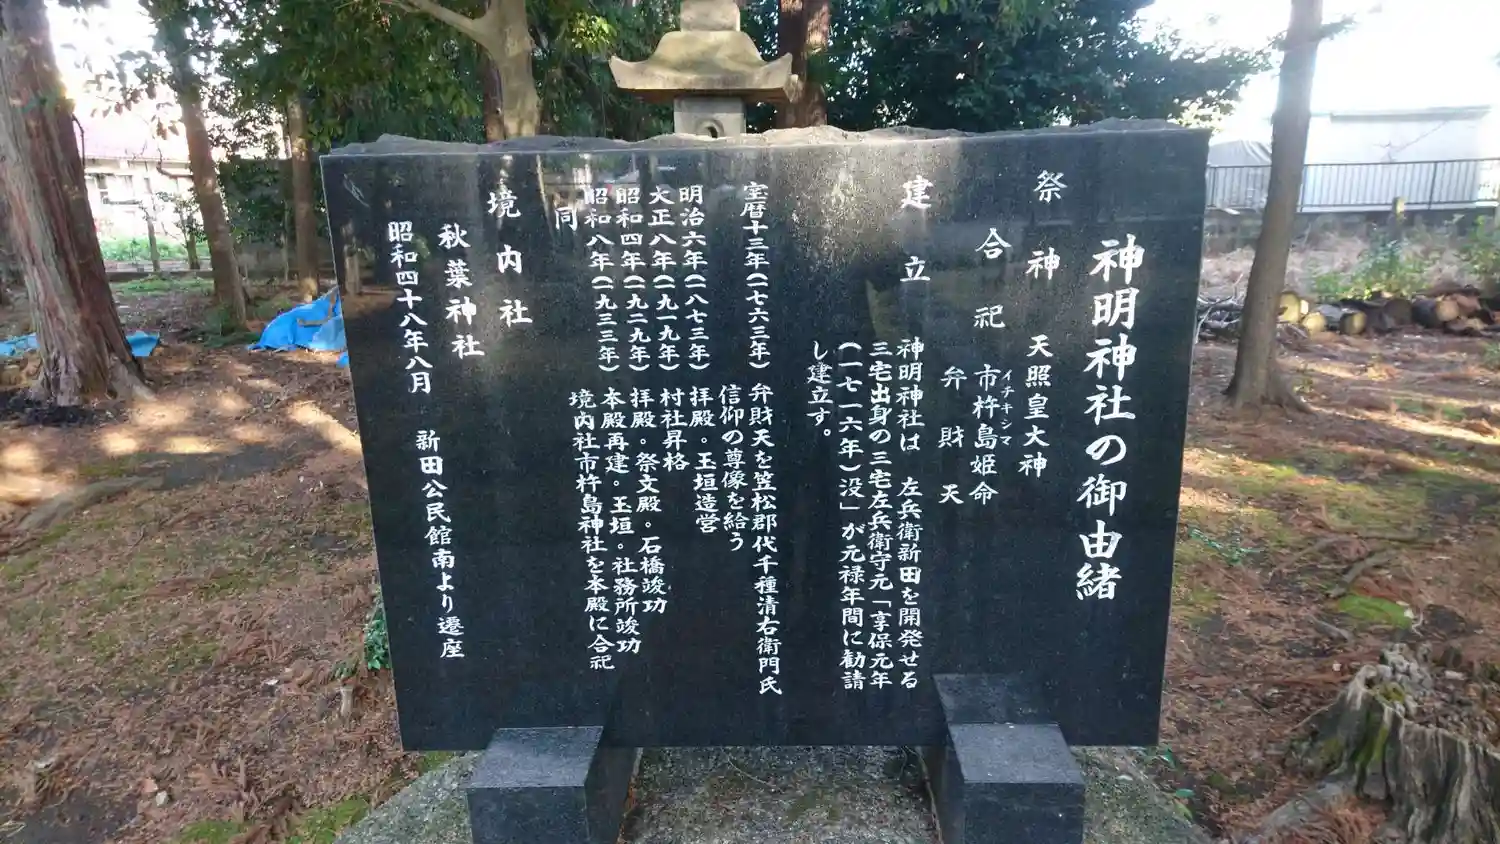 神明神社の御由緒
祭神 天照皇大神
合祀 市杵島姫命
イチキシマ
弁財天
建立 神明神社は 左兵衛新田を開発せる
三宅出身の三宅左兵衛守元「享保元年
(一七一六年)没」が元禄年間に勧請
し建立す。
宝暦十三年(一七六三年) 弁財天を笠松郡代千種清右衛門氏
信仰の尊像を給う
明治六年(一八七三年) 拝殿。玉垣造営
大正八年(一九一九年) 村社昇格
昭和四年(一九二九年) 拝殿。祭文殿。石橋竣功
昭和八年(一九三三年) 本殿再建。玉垣。社務所竣功
同 境内社市杵島神社を本殿に合祀
境内社
秋葉神社
昭和四十八年八月 新田公民館南より遷座